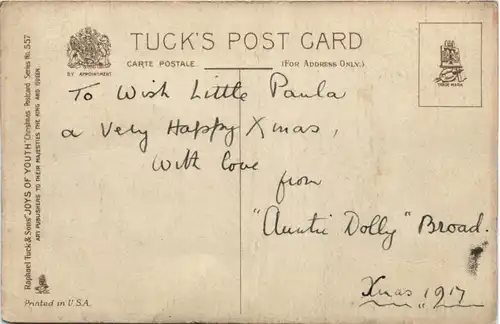 TUCK'S POST CARD
BY APPOINTMENT
CARTE POSTALE
(FOR ADDRESS ONLY.)
TRADE MARK
To Wish Little Paula
a very Happy Xmas,
With love
from
"Auntie Dolly" Broad.
Xmas 1917
Raphael Tuck & Sons' "JOYS OF YOUTH" Christmas Postcard Series No. 557
ART PUBLISHERS TO THEIR MAJESTIES THE KING AND QUEEN.
Printed in U.S.A.